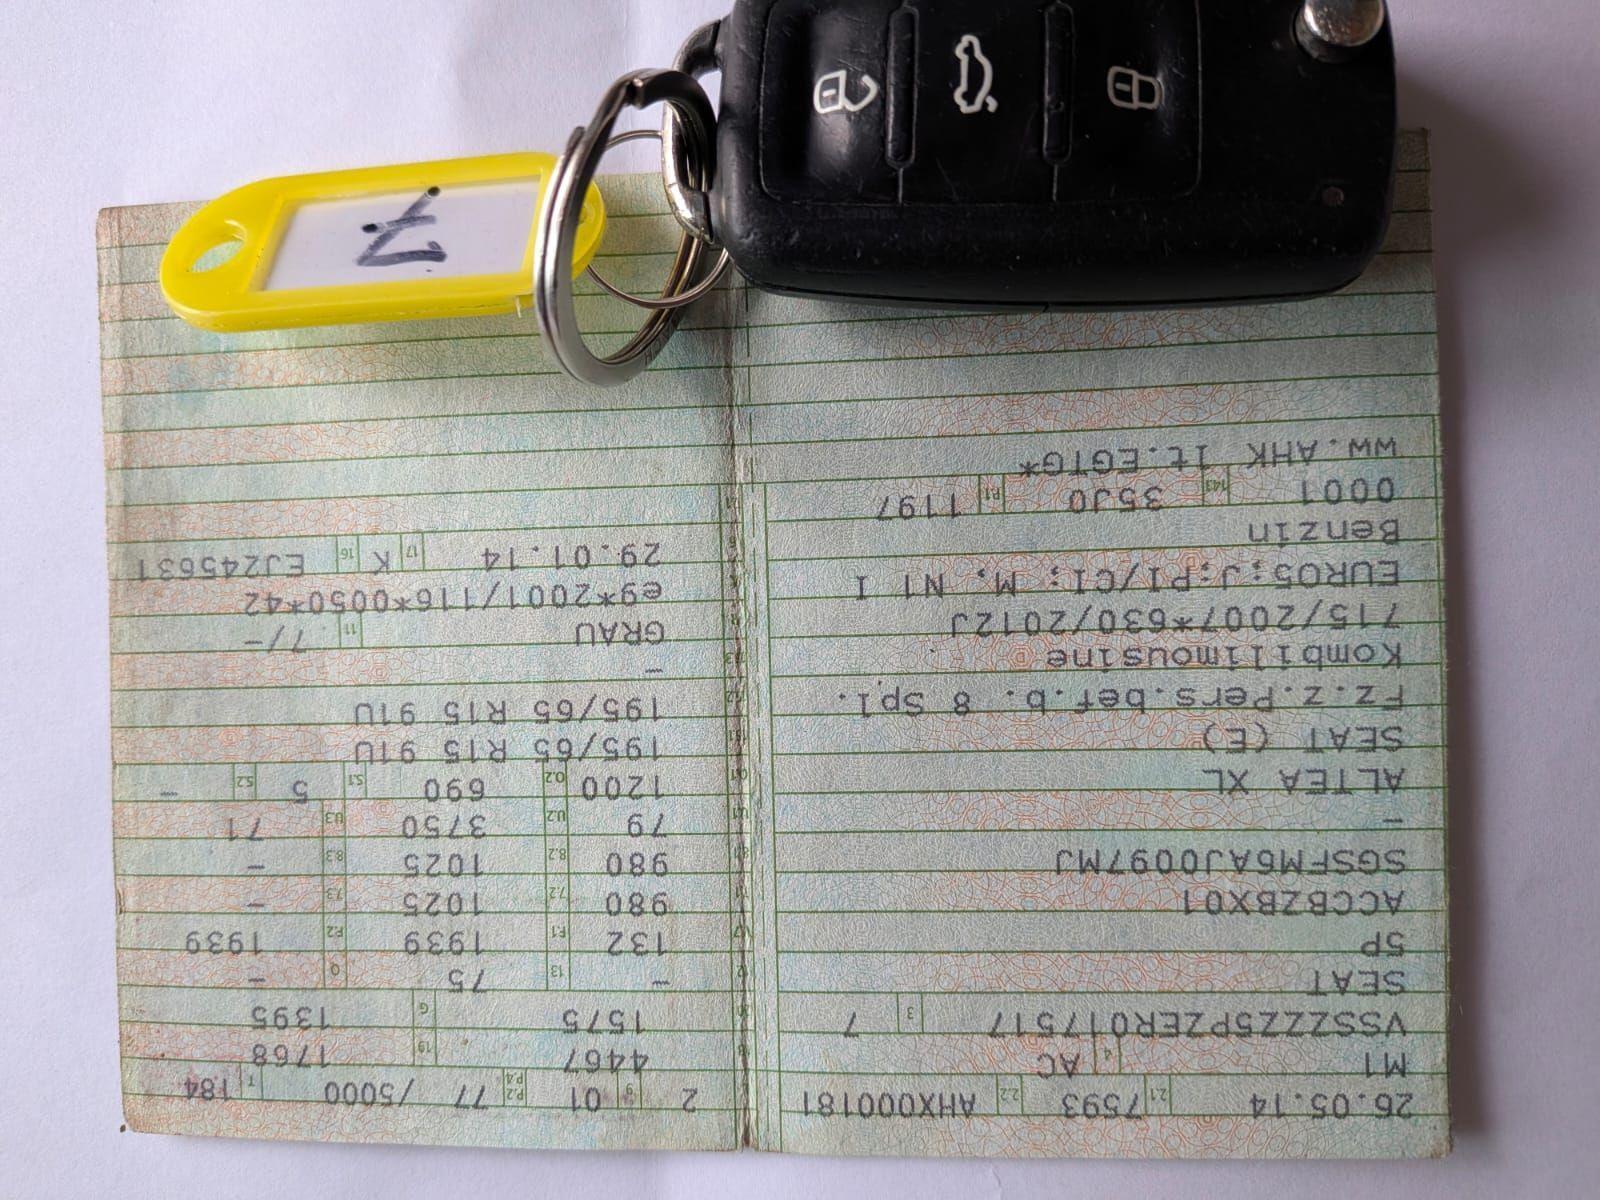 26.05.14 2.1 7593 2.2 AHX000181
M1 4 AC
VSSZZZ5PZER017517 3 7
SEAT
5P
ACCBZBX01
SGSFM6AJ0097MJ
–
ALTEA XL
SEAT (E)
Fz.z.Pers.bef.b. 8 Spl.
Kombilimousine
715/2007*630/2012J
EURO5;J;PI/CI; M, N1 I
Benzin
0001 14.1 35J0 P.1 1197
ww.AHK lt.EGTG*
2 9 01 P.2 P.4 77 /5000 T 184
4467 19 1768
1575 G 1395
– 13 75 Q –
132 F.1 1939 F.2 1939
980 7.2 1025 7.3 –
980 8.2 1025 8.3 –
79 U.2 3750 U.3 71
1200 O.2 690 S.1 5 S.2 –
195/65 R15 91U
195/65 R15 91U
–
GRAU 11 7/–
e9*2001/116*0050*42
29.01.14 17 K 16 EJ245631